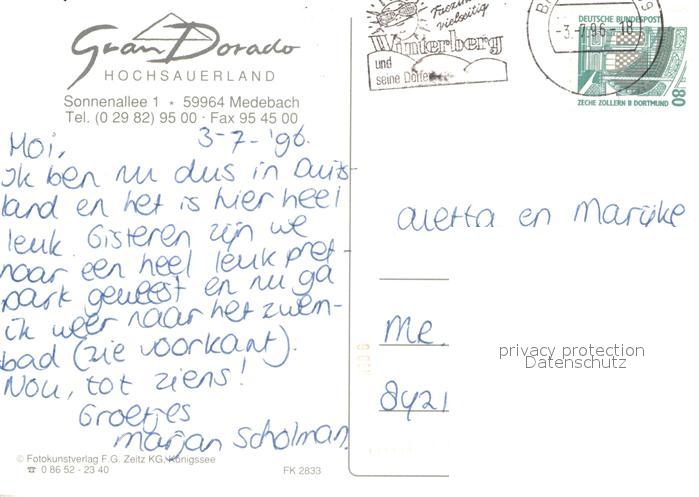 Gran Dorado
HOCHSAUERLAND
Sonnenallee 1 * 59964 Medebach
Tel. (0 29 82) 95 00 · Fax 95 45 00
3-7-'96.
Hoi,
Ik ben nu dus in Duits-
land en het is hier heel
leuk. Gisteren zijn we
naar een heel leuk pret-
park geweest en nu ga
ik weer naar het zwem-
bad (zie voorkant).
Nou, tot ziens!
Groetjes
Marjan Scholman
© Fotokunstverlag F.G. Zeitz KG, Königssee
☎ 0 86 52 - 23 40
FK 2833
vielseitig
Winterberg
und
seine Dörfer
-3.-7.96-18
DEUTSCHE BUNDESPOST
80
ZECHE ZOLLERN II DORTMUND
Aletta en Marijke
MR.
8421
privacy protection
Datenschutz